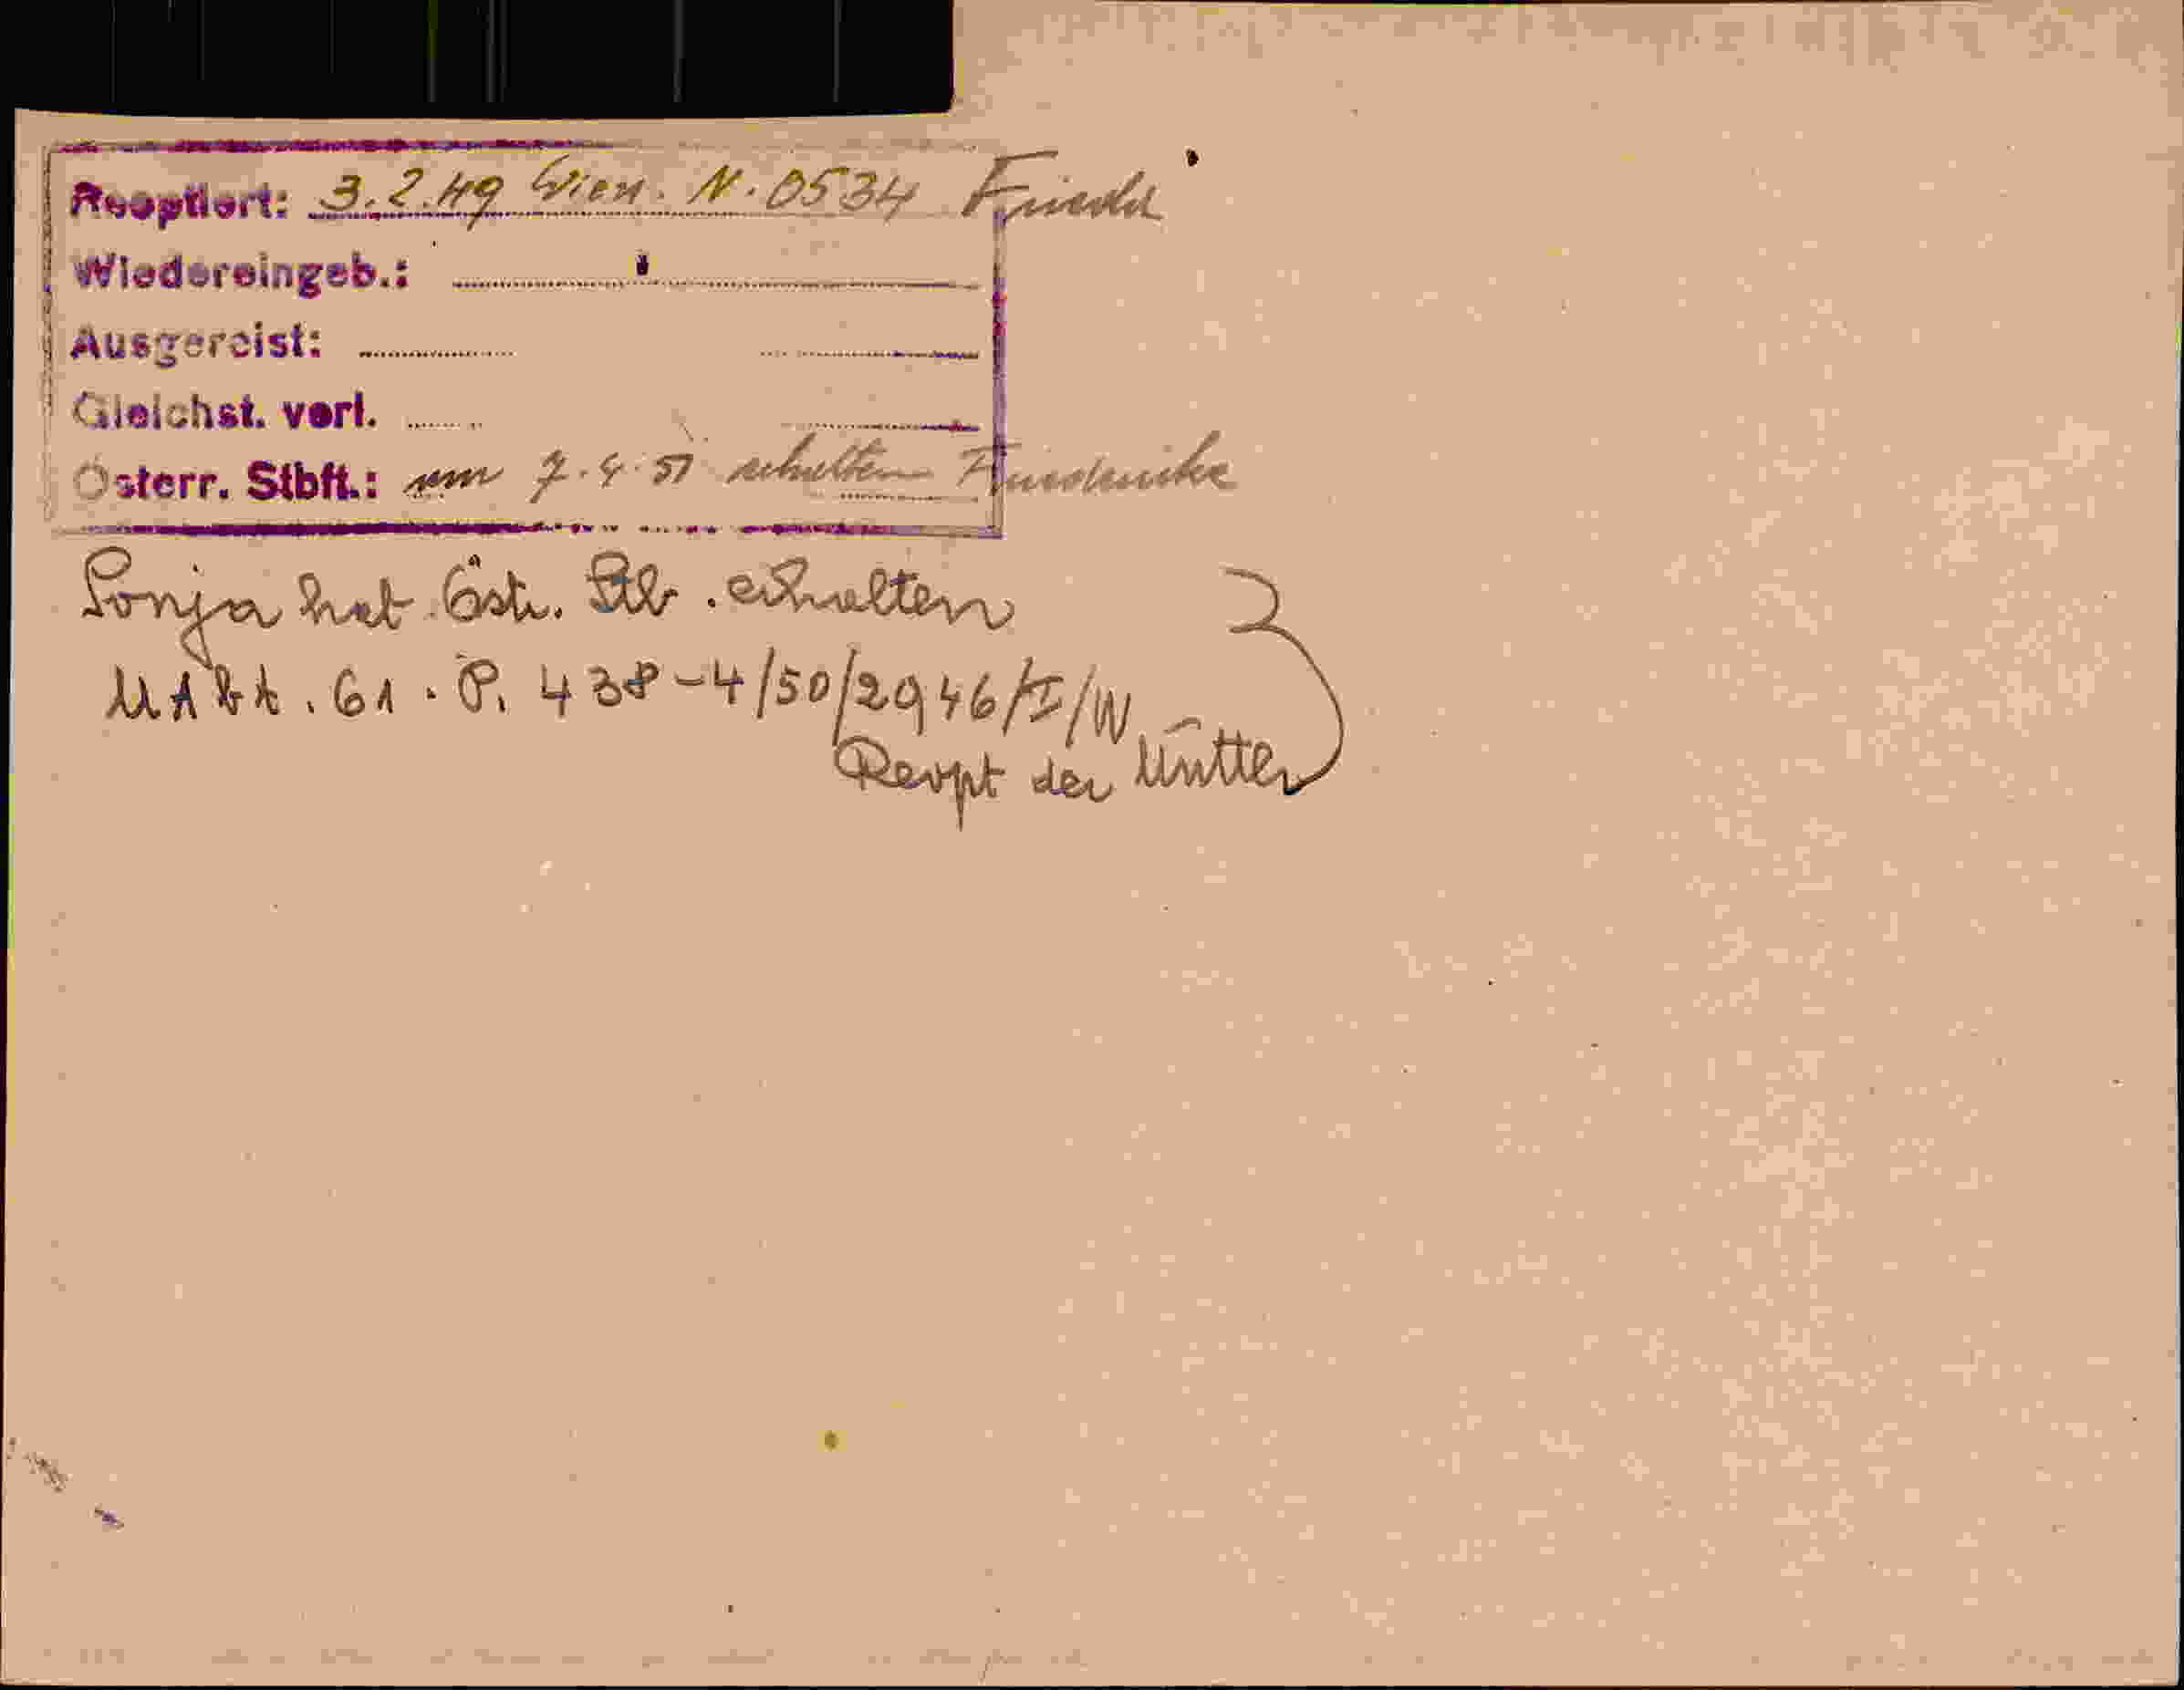 Reoptiert: 3.2.49 Wien. N. 0534 Frieder
Wiedereingeb.:
Ausgereist:
Gleichst. verl.
Österr. Stbft.: am 7.4.51 erhalten Friederike
Sonja hat Östr. Stb. erhalten
M Abt. 61. P. 438-4/50/2946/I/W
Reopt der Mutter